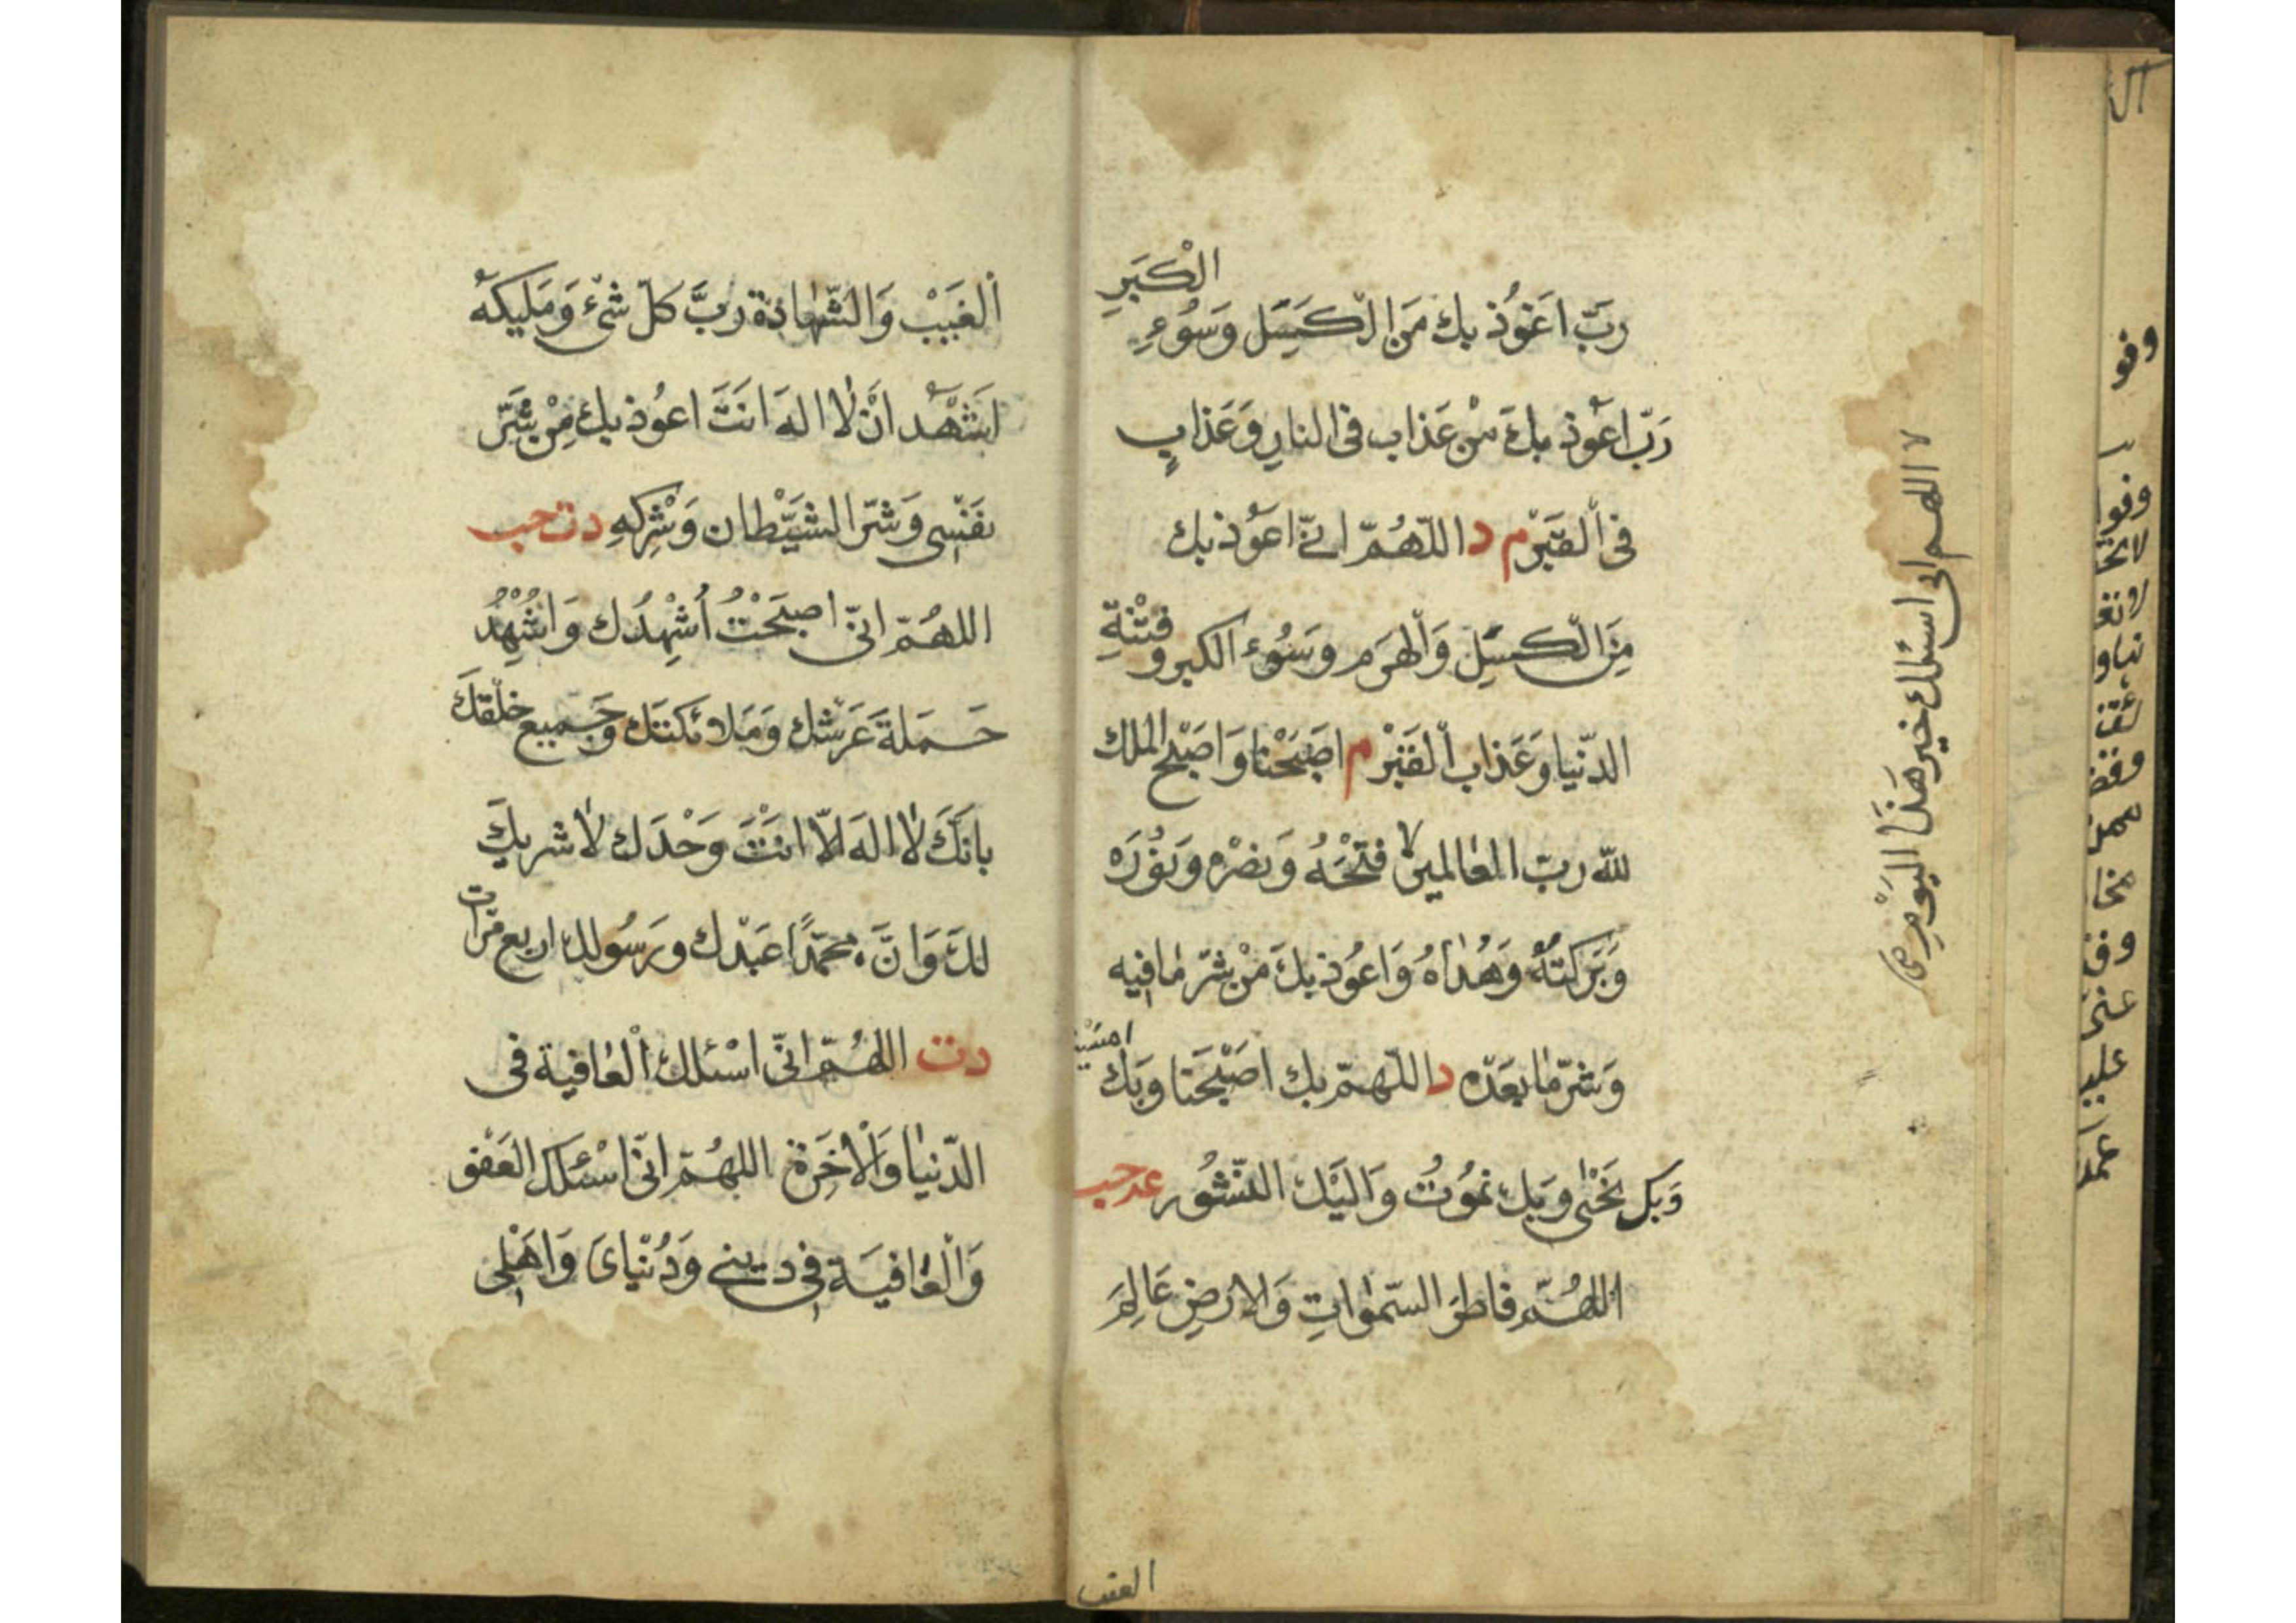 الْكبَرِ
رَبّ اَعُوْذ بك مَن الْكَسَل وَسُوْءِ
رَبّ اَعُوْذ بكَ مْن عَذاب فى النارِ وَعَذابٍ
فى الْقَبْر م د اللّهُمّ انّى اعَوُذ بك
مِنَ الْكسَلِ وَالْهَرَم وسَوُء الكبر و فتْنَةِ
الدّنيا وَعَذاب الْقَبْر م اصَبَحْنا وَاصَبْح الملك
لله ربّ العٰالمين فتْحَهُ وَنصْره وَنُوْرَه
وَبَرَكتهُ وَهُدٰاهُ وَاعوُذ بكَ مْن شرّ مٰا فيه
وَشرّ مٰا بعَدْه د اللّهمّ بك اصَبْحَنا وَبك
امسَيْنا
وَبك نَحْيٰى وَبك نموُتُ وَاليَك النّشوُر عه حب
اللهُمّ فاطرَ السّموٰاتِ وَالارضِ عَالِمَ
الغيب
لا اللهم انى اسئلك خير هَذَا اليَوْمِ صح
اَلْغَيْب وَالشّهٰادَة رَبَّ كلّ شْئ وَمَليكهُ
اَشَهْد انْ لٰا الهَ انَتَ اعوُذ بك مِنْ شَرّ
نفَسْى وَشرّ الشَيْطان وَشْركهِ دت حب
اللهُمّ انّى اصبَحْتُ اُشْهدُك وَاُشْهِدُ
حَملَةَ عَرْشك وَمَلائكتَك وَجَميع خلْقكَ
بانَكَ لٰا الهَ الّا انتَْ وَحْدَك لٰا شريكَ
لكَ وَانَّ محمّدًا عَبْدك ورَسُولك اربع مرّات
دت اللهُمّ انّى اسْئلك الْعٰافية فى
الدّنيا وَالْاٰخَرة اللهُمّ انّى اسْئلك العَفْو
وَالْعٰافيَة فى دينى وَدُنْياىَ وَاهَلْى